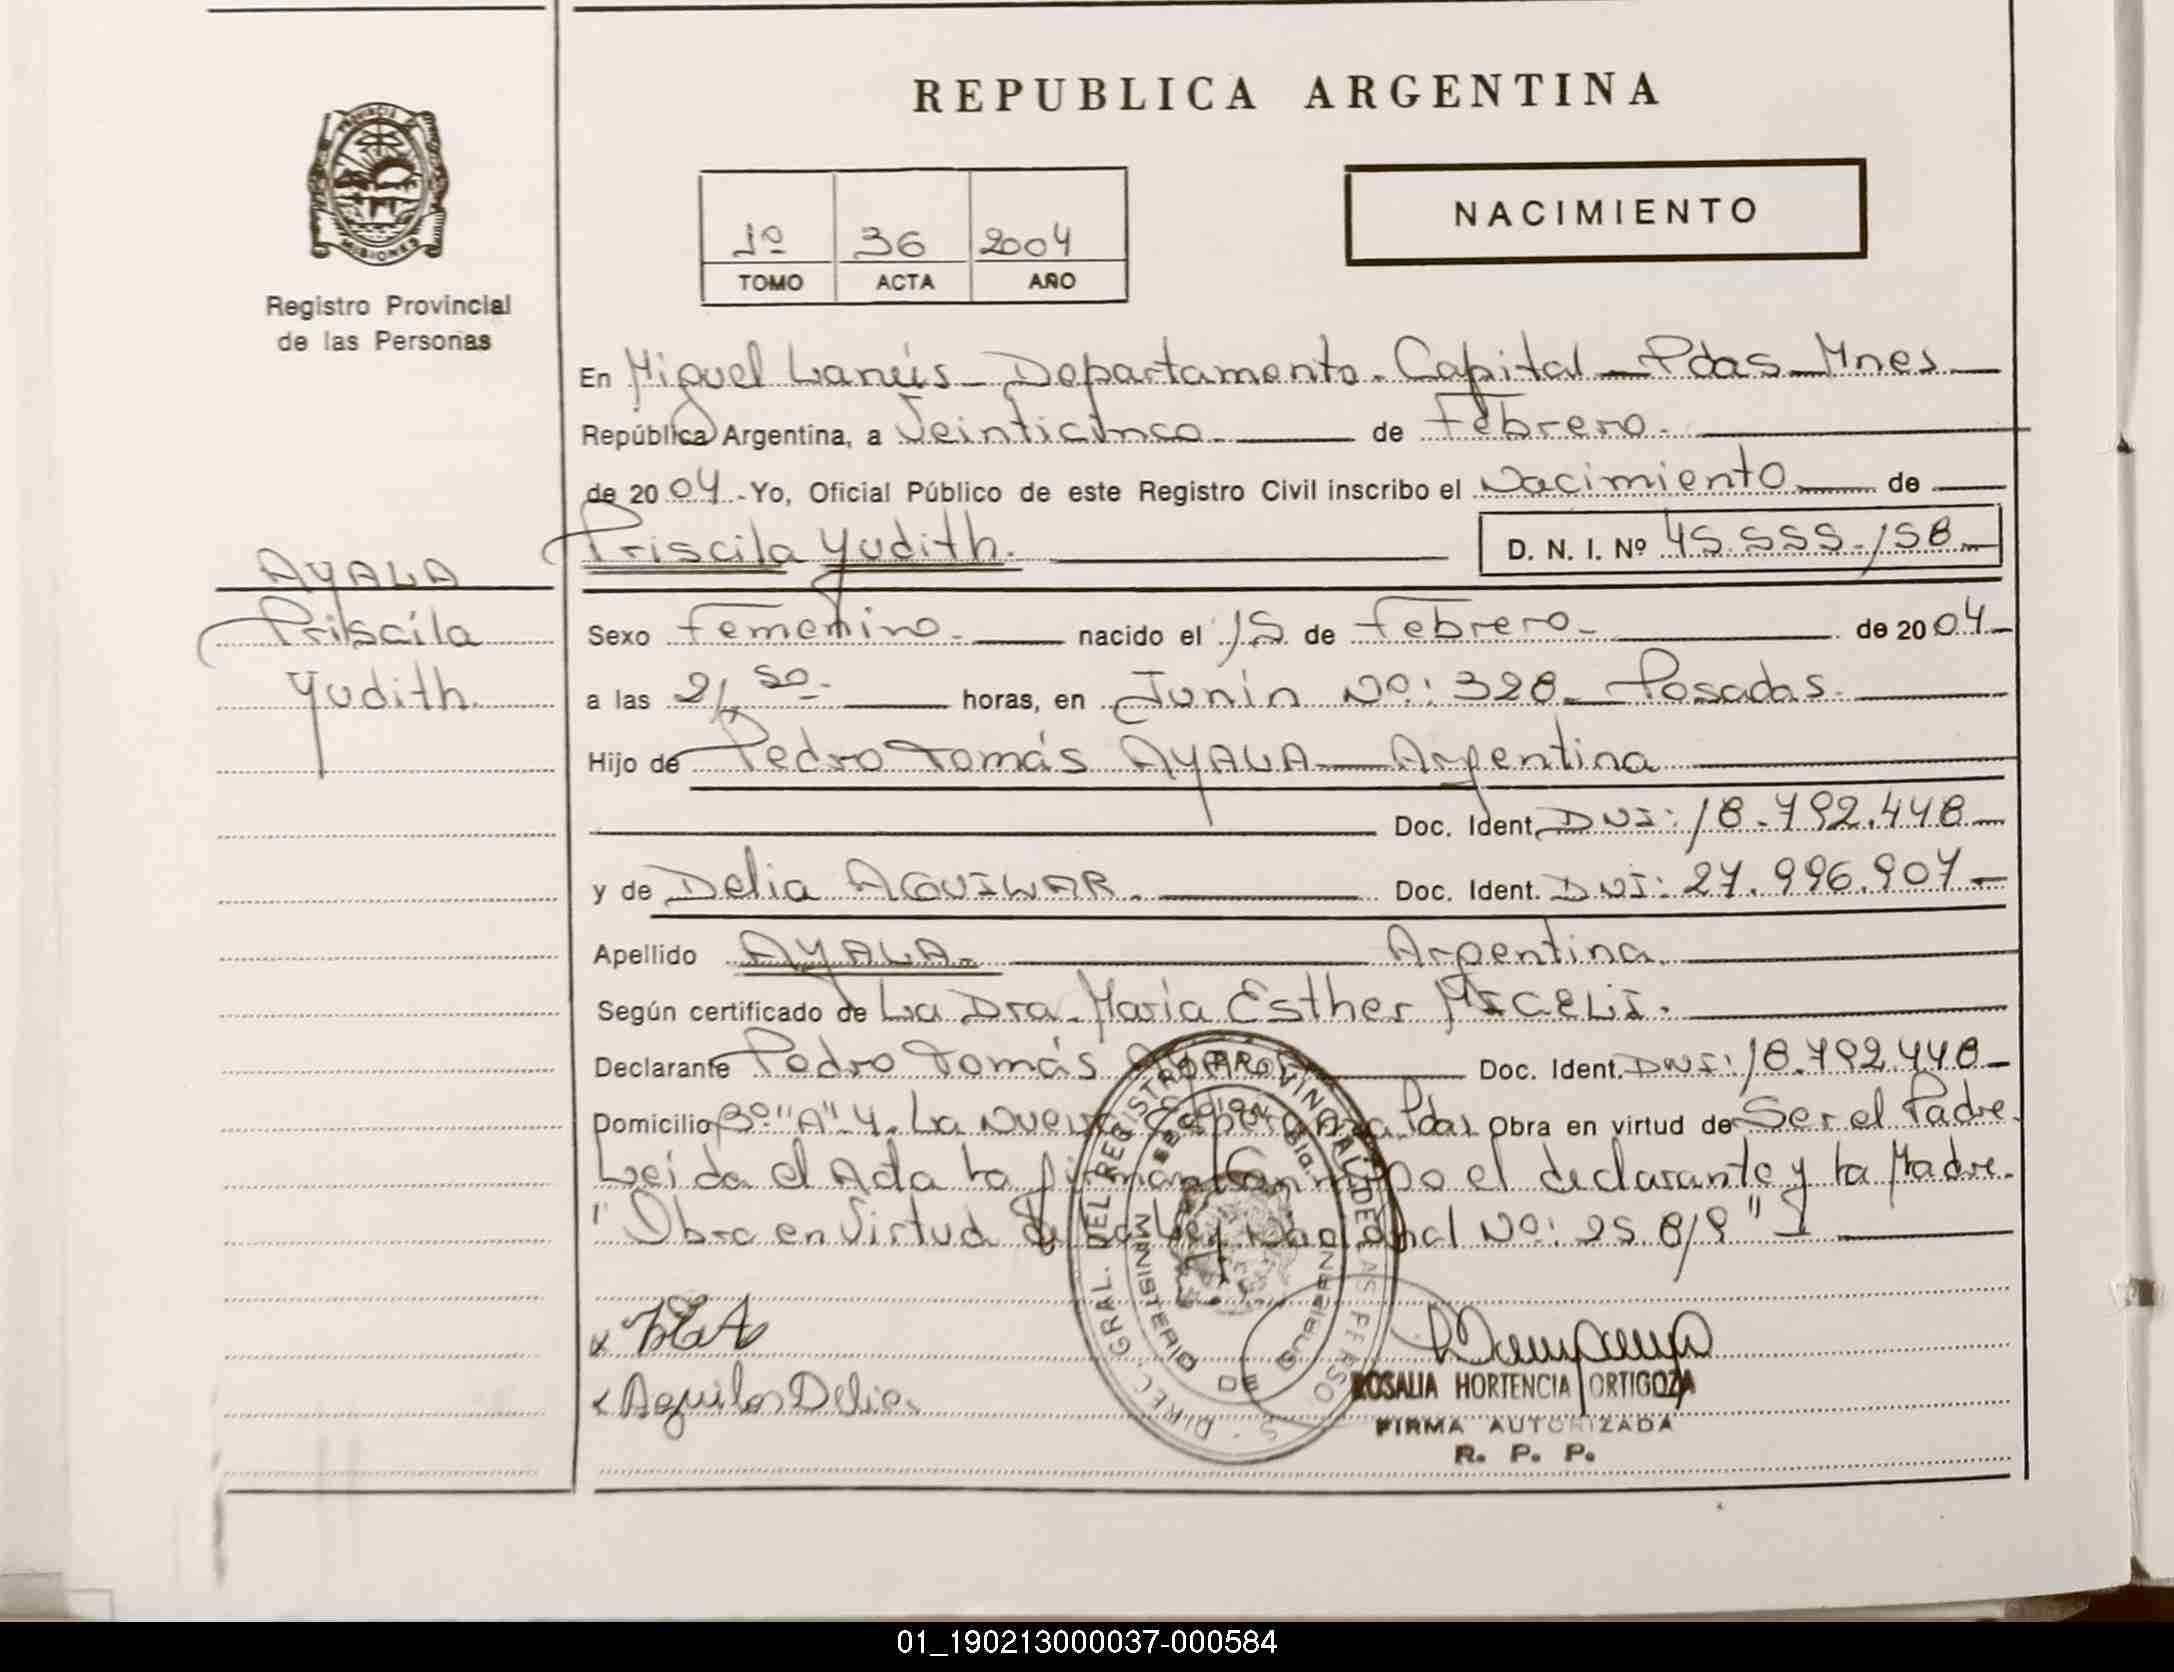 REPUBLICA ARGENTINA
PROVINCIA DE
MISIONES
Registro Provincial
de las Personas
NACIMIENTO
1º 36 2004
TOMO ACTA AÑO
En Miguel Lanús - Departamento - Capital - Pdas - Mnes
República Argentina, a Veinticinco de Febrero.
de 2004 - Yo, Oficial Público de este Registro Civil inscribo el Nacimiento de
Priscila Yudith. D. N. I. Nº 45.555.158
AYALA
Priscila
Yudith.
Sexo Femenino nacido el 15 de Febrero de 2004
a las 21,50 horas, en Junín Nº: 328 - Posadas.
Hijo de Pedro Tomás AYALA - Argentina
Doc. Ident. DNI: 18.792.448
y de Delia AGUILAR. Doc. Ident. DNI: 27.996.907
Apellido AYALA. Argentina.
Según certificado de La Dra. María Esther MICELI.
Declarante Pedro Tomás AYALA Doc. Ident. DNI: 18.792.448
Domicilio "A" 4. La Nueva Esperanza Pdas Obra en virtud de Ser el Padre.
Leída el Acta la firman Conmigo el declarante y la Madre.
"Obra en Virtud de la Ley Nacional Nº: 25.819"
DIREC. GRAL. DEL REGISTRO PROVINCIAL DE LAS PERSONAS
MINISTERIO DE GOBIERNO
x
x Aguilar Delia
ROSALIA HORTENCIA ORTIGOZA
FIRMA AUTORIZADA
R. P. P.
01_190213000037-000584